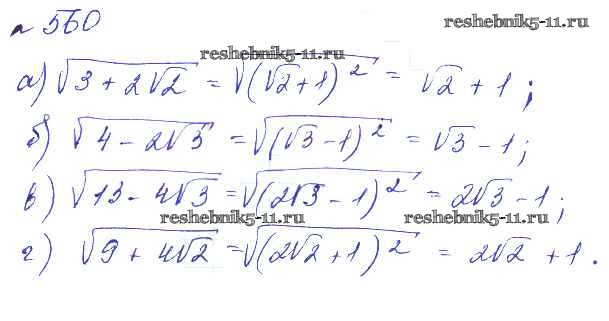 № 560
reshebnik5-11.ru
reshebnik5-11.ru
а) √(3 + 2√2) = √((√2 + 1)²) = √2 + 1;
б) √(4 - 2√3) = √((√3 - 1)²) = √3 - 1;
в) √(13 - 4√3) = √((2√3 - 1)²) = 2√3 - 1;
reshebnik5-11.ru
reshebnik5-11.ru
г) √(9 + 4√2) = √((2√2 + 1)²) = 2√2 + 1.